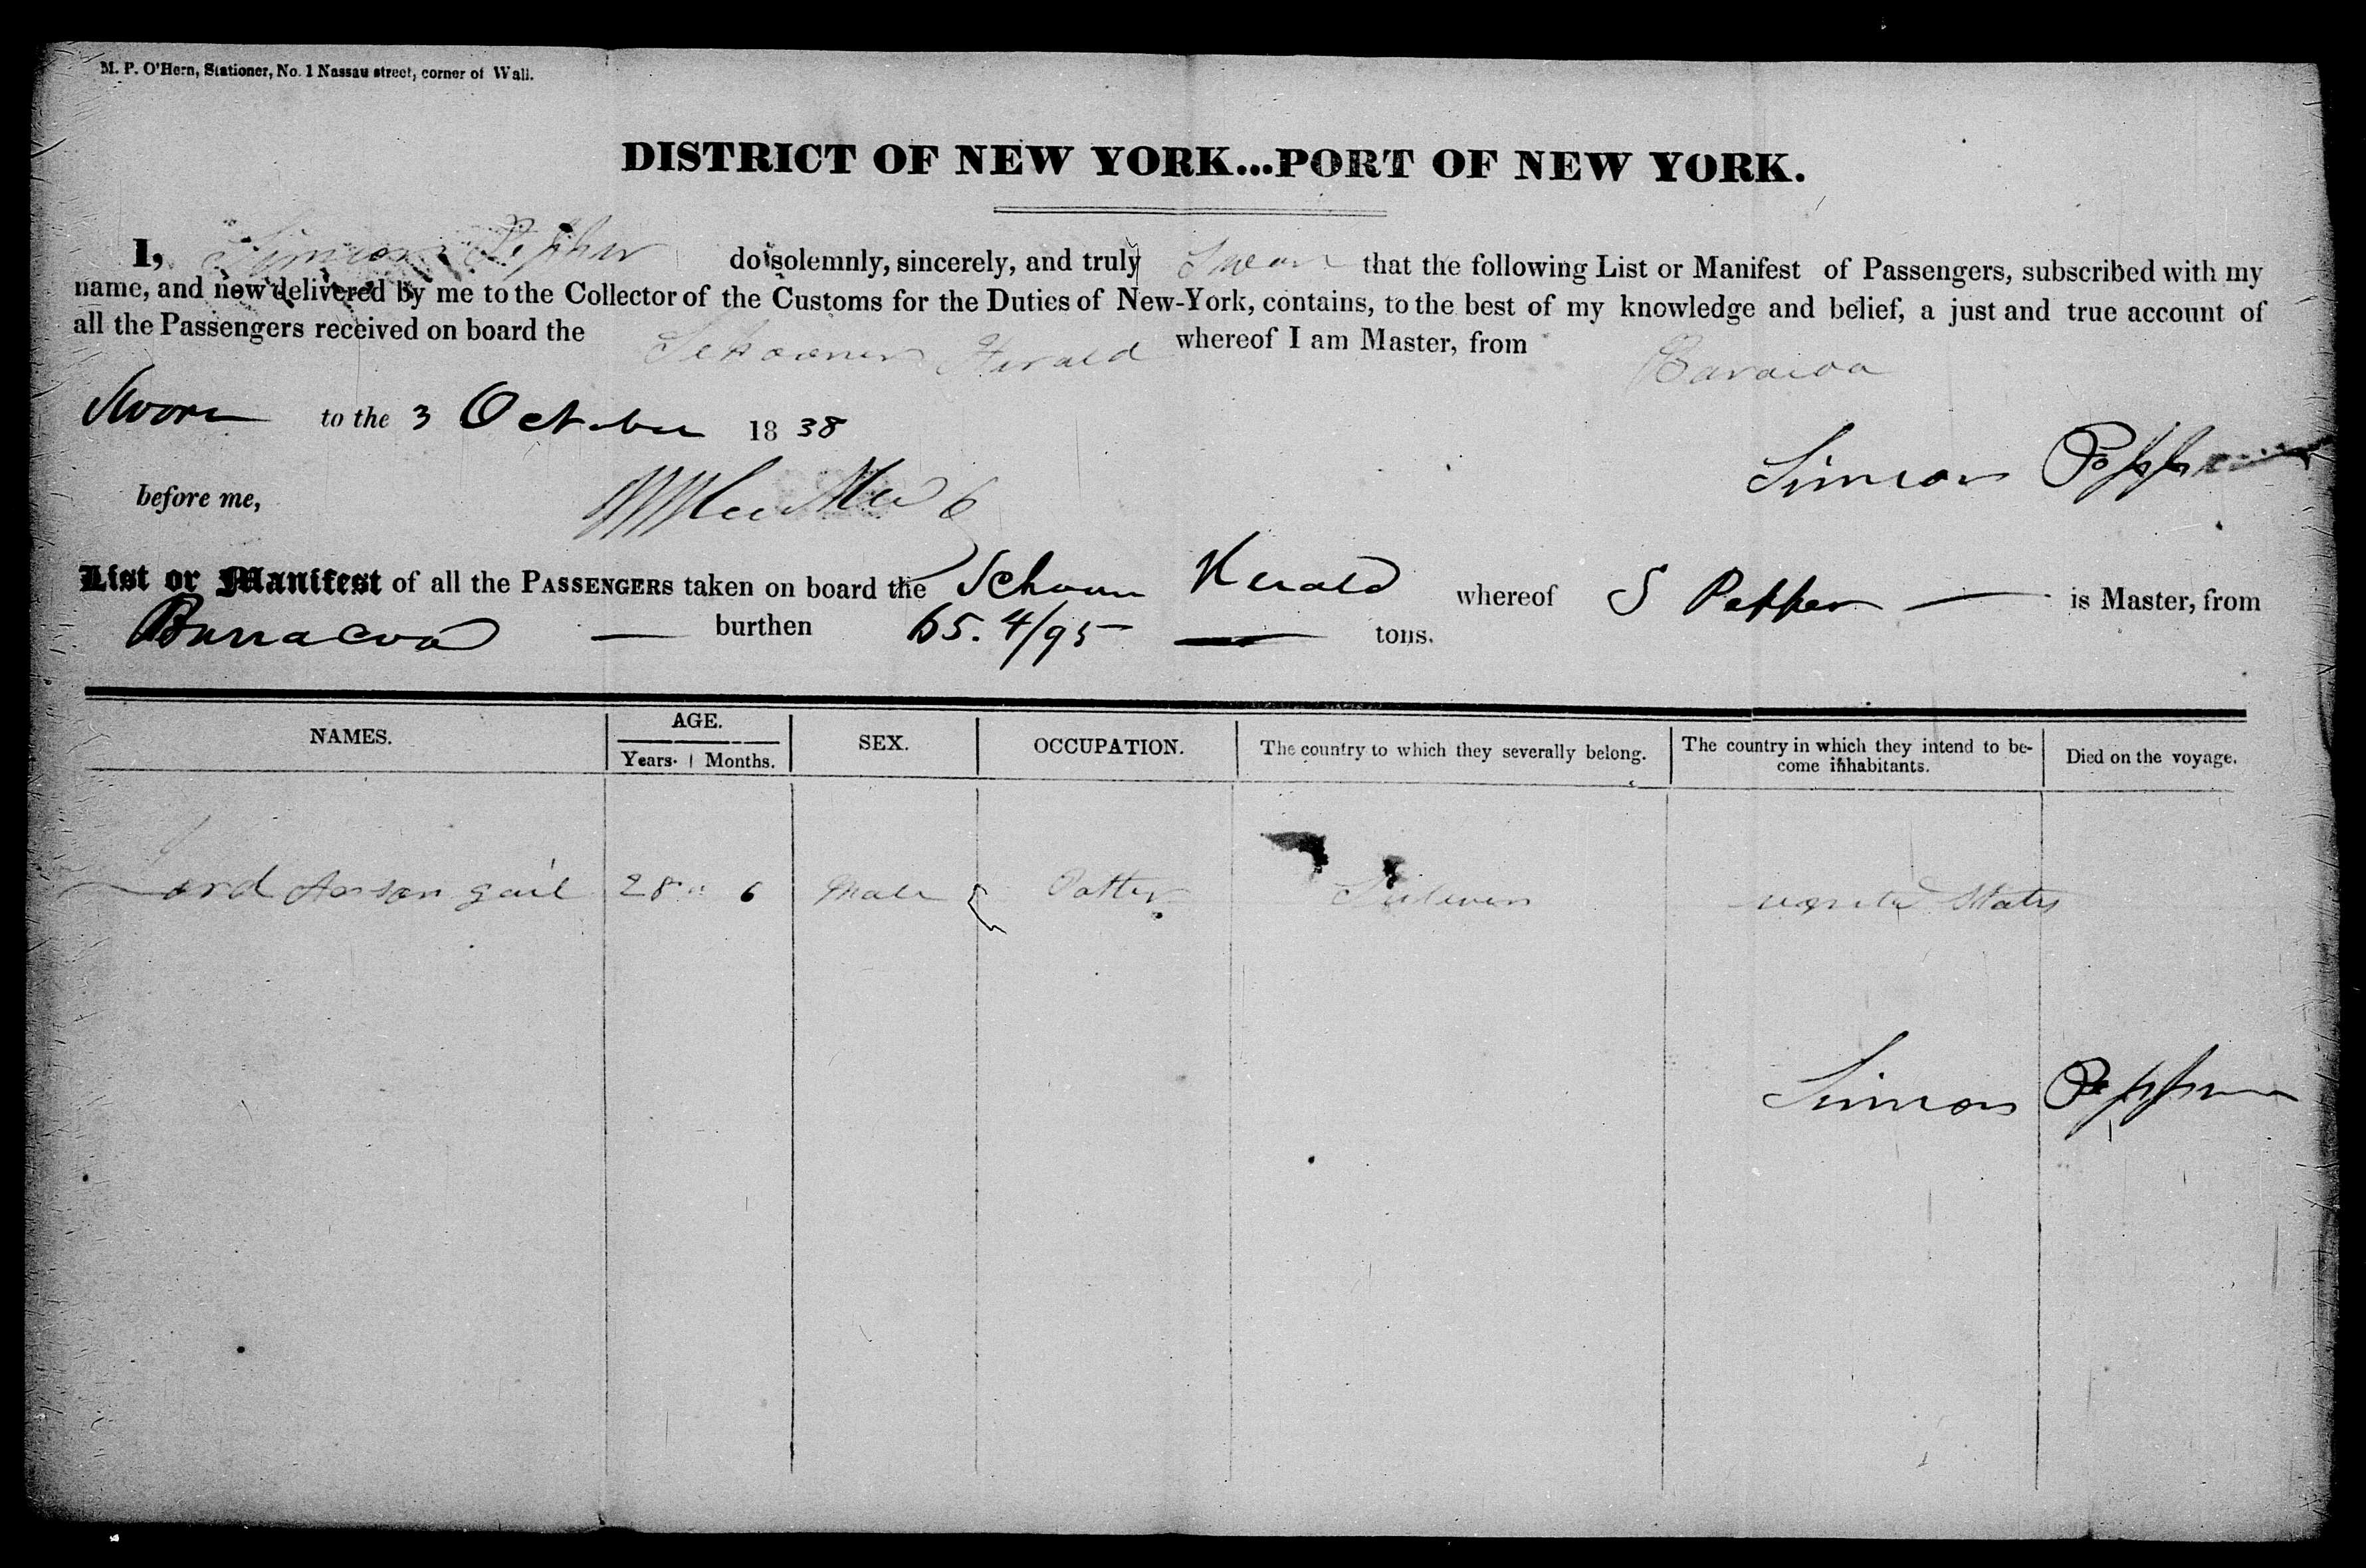 M. P. O'Hern, Stationer, No. 1 Nassau street, corner of Wall.
DISTRICT OF NEW YORK...PORT OF NEW YORK.
I, Simeon Pepper do solemnly, sincerely, and truly Swear that the following List or Manifest of Passengers, subscribed with my
name, and now delivered by me to the Collector of the Customs for the Duties of New-York, contains, to the best of my knowledge and belief, a just and true account of
all the Passengers received on board the Schooner Herald whereof I am Master, from Baracoa
Sworn to the 3 October 1838
Simeon Pepper
before me,
List or Manifest of all the PASSENGERS taken on board the Schoon Herald whereof S Pepper is Master, from
Barracoa burthen 65. 4/95 tons.
NAMES. AGE. SEX. OCCUPATION. The country to which they severally belong. The country in which they intend to be-
come inhabitants. Died on the voyage.
Years. Months.
28 6 Male United States
Simeon Pepper